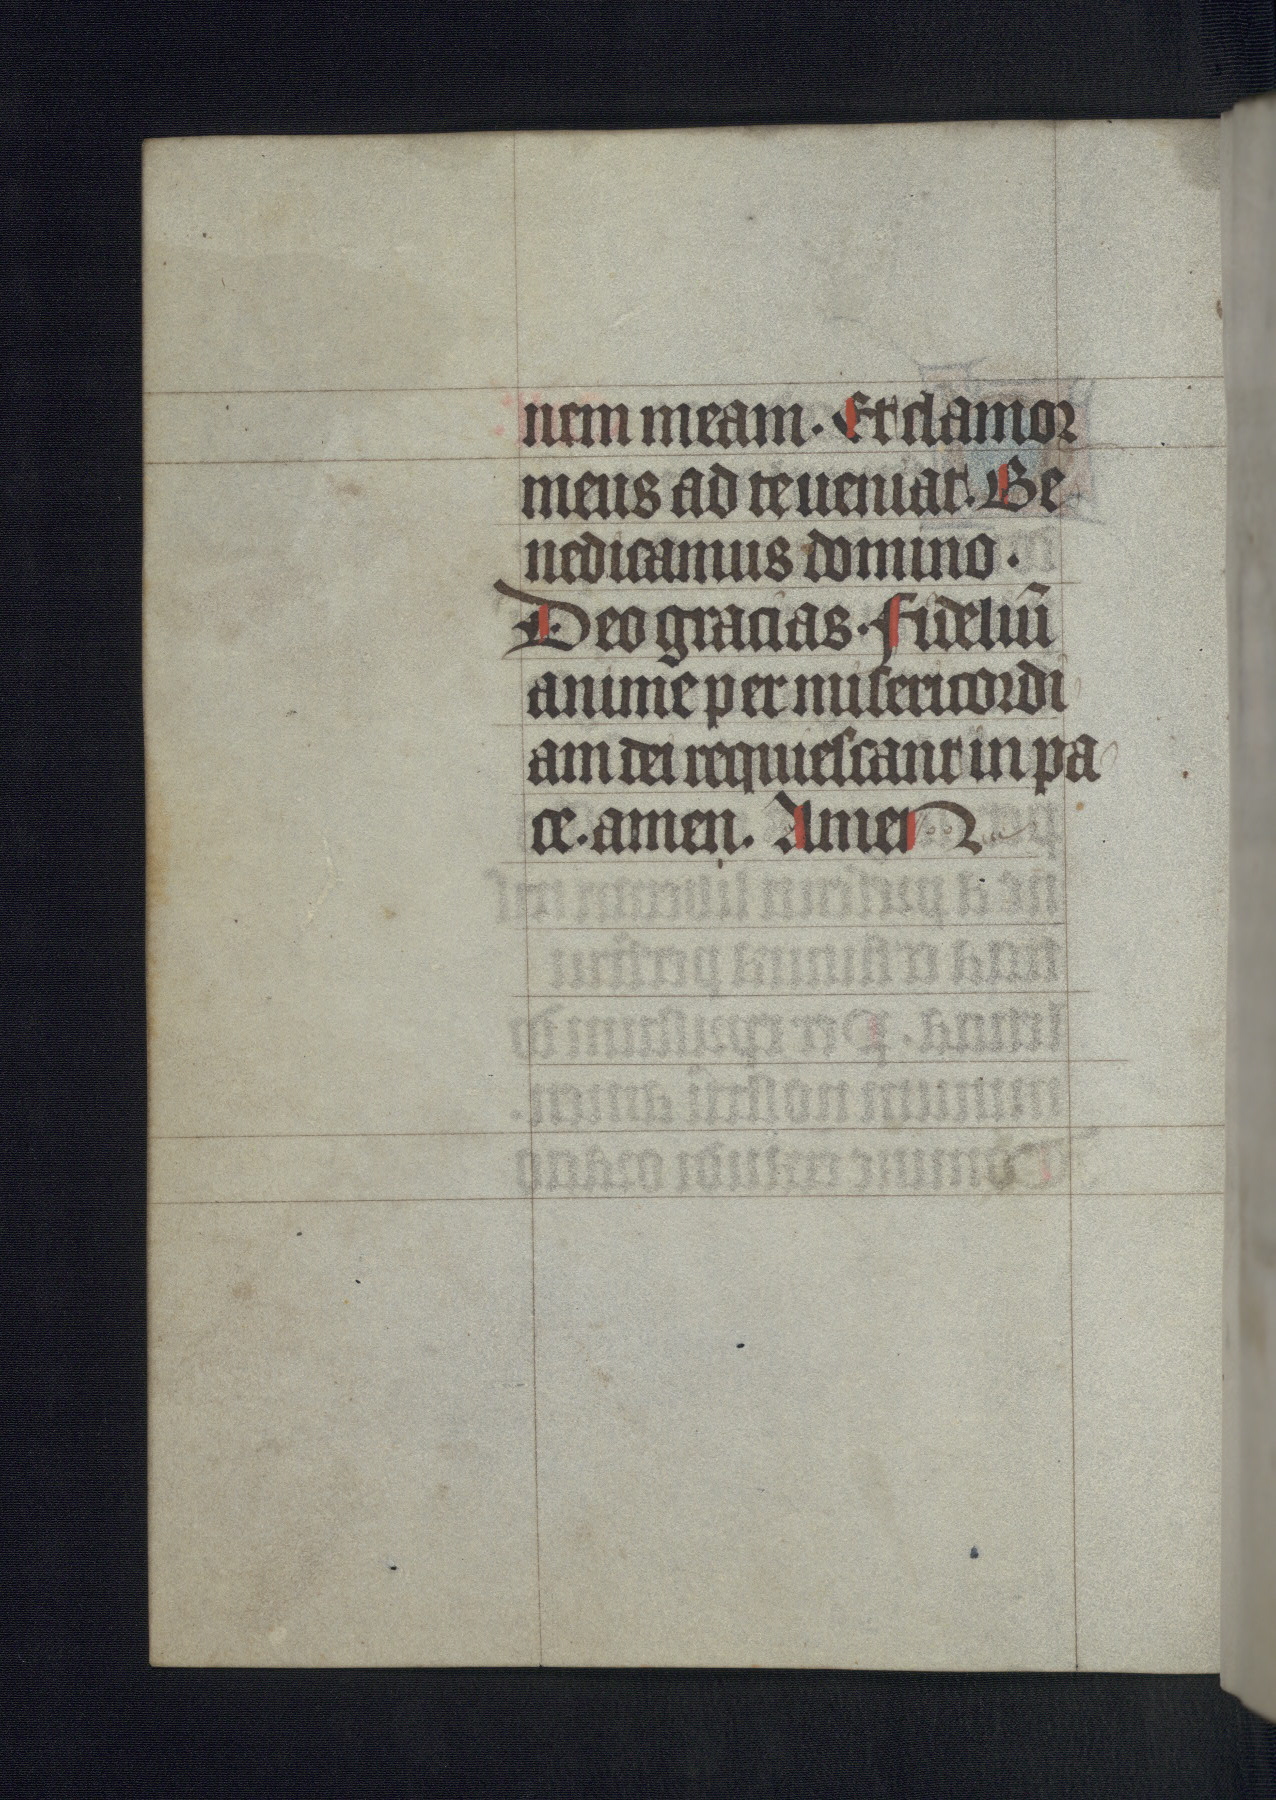 nem meam. Et clamor
meus ad te ueniat. Be
nedicamus domino.
Deo gracias. Fideliū
anime per misericordi
am dei requiescant in pa
ce. amen. Amen